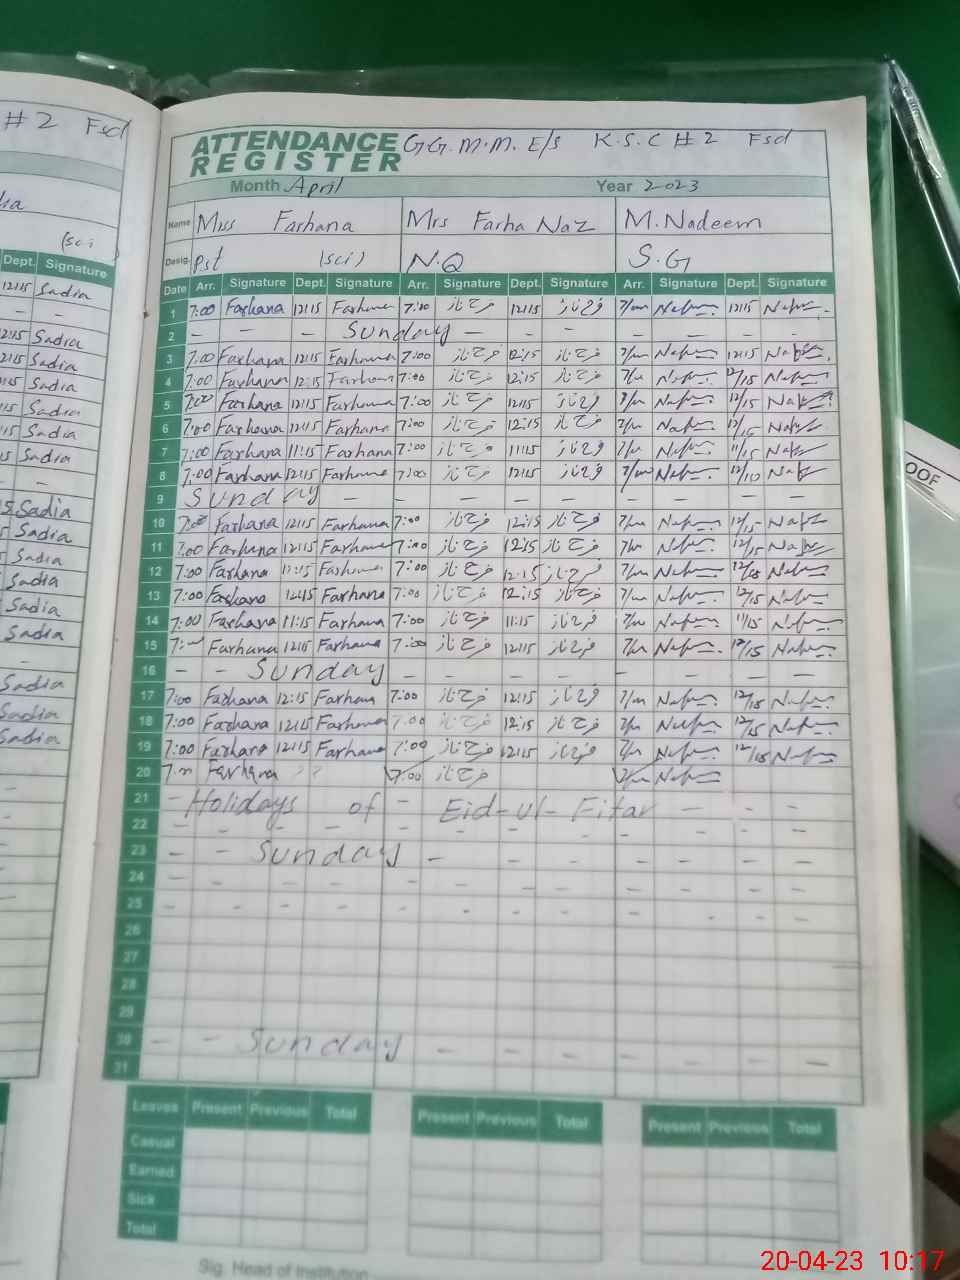 # 2 Fsd
(sci
Dept. Signature
12:15 Sadia
- -
12:15 Sadia
12:15 Sadia
Sadia
Sadia
Sadia
Sadia
- -
Sadia
Sadia
Sadia
Sadia
Sadia
Sadia
-
Sadia
Sadia
Sadia
ATTENDANCE REGISTER G.G.M.M. E/s K.S.C # 2 Fsd
Month April Year 2023
Name Miss Farhana Mrs Farha Naz M.Nadeem
Desig. Pst (sci) N.Q S.G
Date Arr. Signature Dept. Signature Arr. Signature Dept. Signature Arr. Signature Dept. Signature
1 7:00 Farhana 12:15 Farhana 7:00 فرح ناز 12:15 فرح ناز 12:15
2 - - - Sunday - - - - - - -
3 7:00 Farhana 12:15 Farhana 7:00 فرح ناز 12:15 فرح ناز 12:15
4 7:00 Farhana 12:15 Farhana 7:00 فرح ناز 12:15 فرح ناز 12/15
5 7:00 Farhana 12:15 Farhana 7:00 فرح ناز 12:15 فرح ناز 12/15
6 7:00 Farhana 12:15 Farhana 7:00 فرح ناز 12:15 فرح ناز 12/15
7 7:00 Farhana 11:15 Farhana 7:00 فرح ناز 11:15 فرح ناز 11/15
8 7:00 Farhana 12:15 Farhana 7:00 فرح ناز 12:15 فرح ناز
9 Sunday - - - - - - - - -
10 7:00 Farhana 12:15 Farhana 7:00 فرح ناز 12:15 فرح ناز 12/15
11 7:00 Farhana 12:15 Farhana 7:00 فرح ناز 12:15 فرح ناز 12/15
12 7:00 Farhana 12:15 Farhana 7:00 فرح ناز 12:15 فرح ناز 12/15
13 7:00 Farhana 12:15 Farhana 7:00 فرح ناز 12:15 فرح ناز 12/15
14 7:00 Farhana 11:15 Farhana 7:00 فرح ناز 11:15 فرح ناز 11/15
15 Farhana 12:15 Farhana 7:00 فرح ناز 12:15 فرح ناز 12/15
16 - - Sunday - - - - - - - -
17 7:00 Farhana 12:15 Farhana 7:00 فرح ناز 12:15 فرح ناز 12/15
18 7:00 Farhana 12:15 Farhana 7:00 فرح ناز 12:15 فرح ناز 12/15
19 7:00 Farhana 12:15 Farhana 7:00 فرح ناز 12:15 فرح ناز 12/15
20 Farhana ?? 7:00 فرح ناز
21 - Holidays of - Eid-ul-Fitar - - - -
22 - - - - - - - - - - - -
23 - - Sunday - - - - - - - -
24 - - - - - - - - - - - -
25 - - - - - - - - - - - -
26
27
28
29
30 - - Sunday - - - - - - - -
31
Leaves Present Previous Total Present Previous Total Present Previous Total
Casual
Earned
Sick
Total
Sig. Head of Institution
OOF
20-04-23 10:17